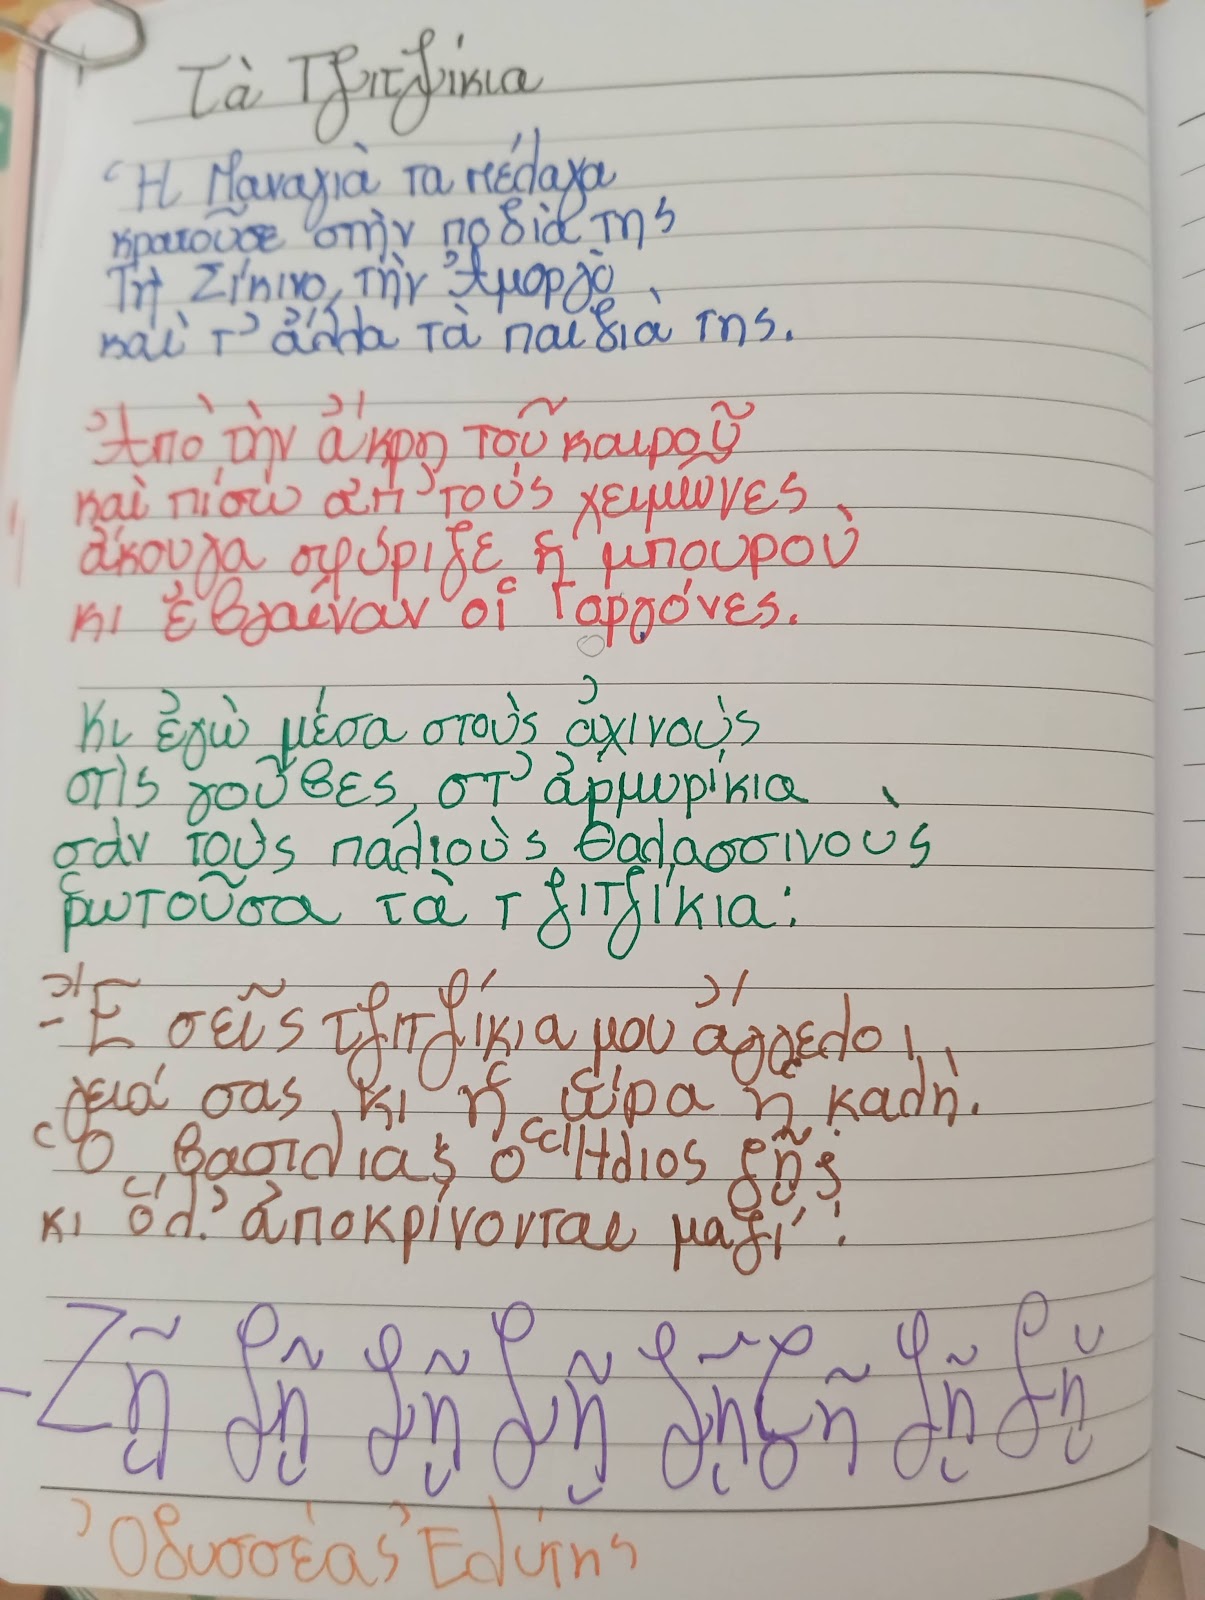 Τὰ Τζιτζίκια
Ἡ Παναγιὰ τα πέλαγα
κρατοῦσε στὴν ποδιὰ της
Τὴ Σίκινο, τὴν Ἀμοργὸ
καὶ τ' ἄλλα τὰ παιδιὰ της.
Ἀπὸ τὴν ἄκρη τοῦ καιροῦ
καὶ πίσω ἀπ' τοὺς χειμῶνες
ἄκουγα σφύριζε ἡ μπουροὺ
κι ἐβγαῖναν οἱ Γοργόνες.
Κι ἐγὼ μέσα στοὺς ἀχινοὺς
στὶς γοῦβες, στ' ἀρμυρίκια
σὰν τοὺς παλιοὺς θαλασσινοὺς
ρωτοῦσα τὰ τζιτζίκια:
- Ἔ σεῖς τζιτζίκια μου ἄγγελοι,
γειά σας κι ἡ ὥρα ἡ καλὴ.
Ὁ βασιλιὰς ὁ Ἥλιος ζῇς
κι ὅλ' ἀποκρίνονται μαζί:
- Ζῇ ζῇ ζῇ ζῇ ζῇ ζῆ ζῇ ζῇ
Ὀδυσσέας Ἐλύτης